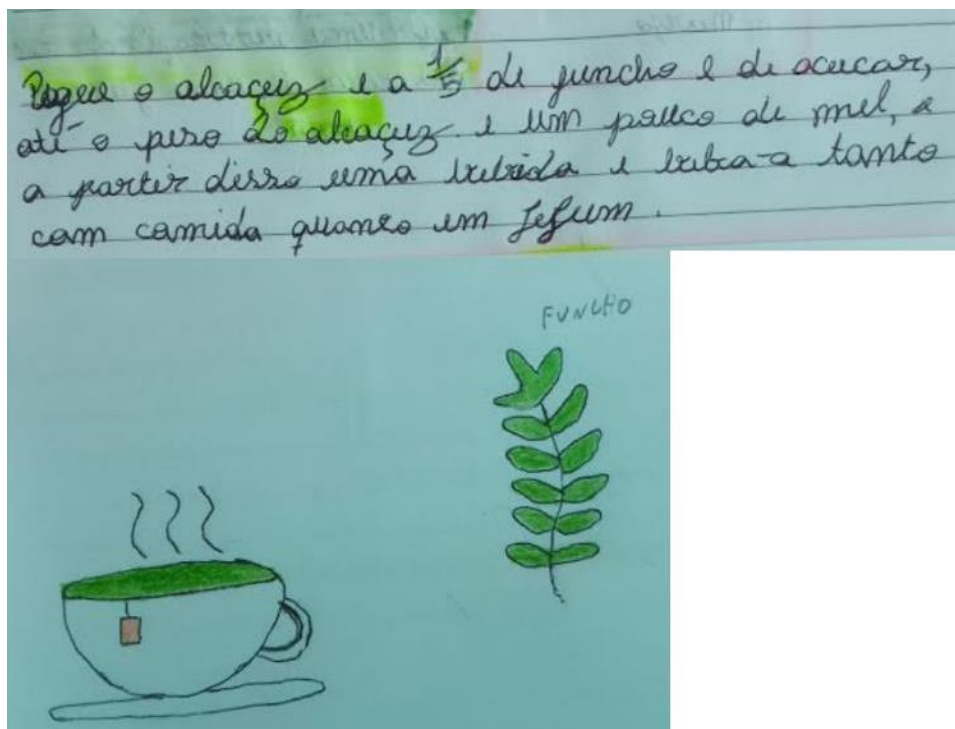 Pegue o alcaçuz e a 1/5 de funcho e de acucar,
até o peso do alcaçuz e um pouco de mel, e
a partir disso uma bebida e beba-a tanto
com comida quanto em jejum.
FUNCHO